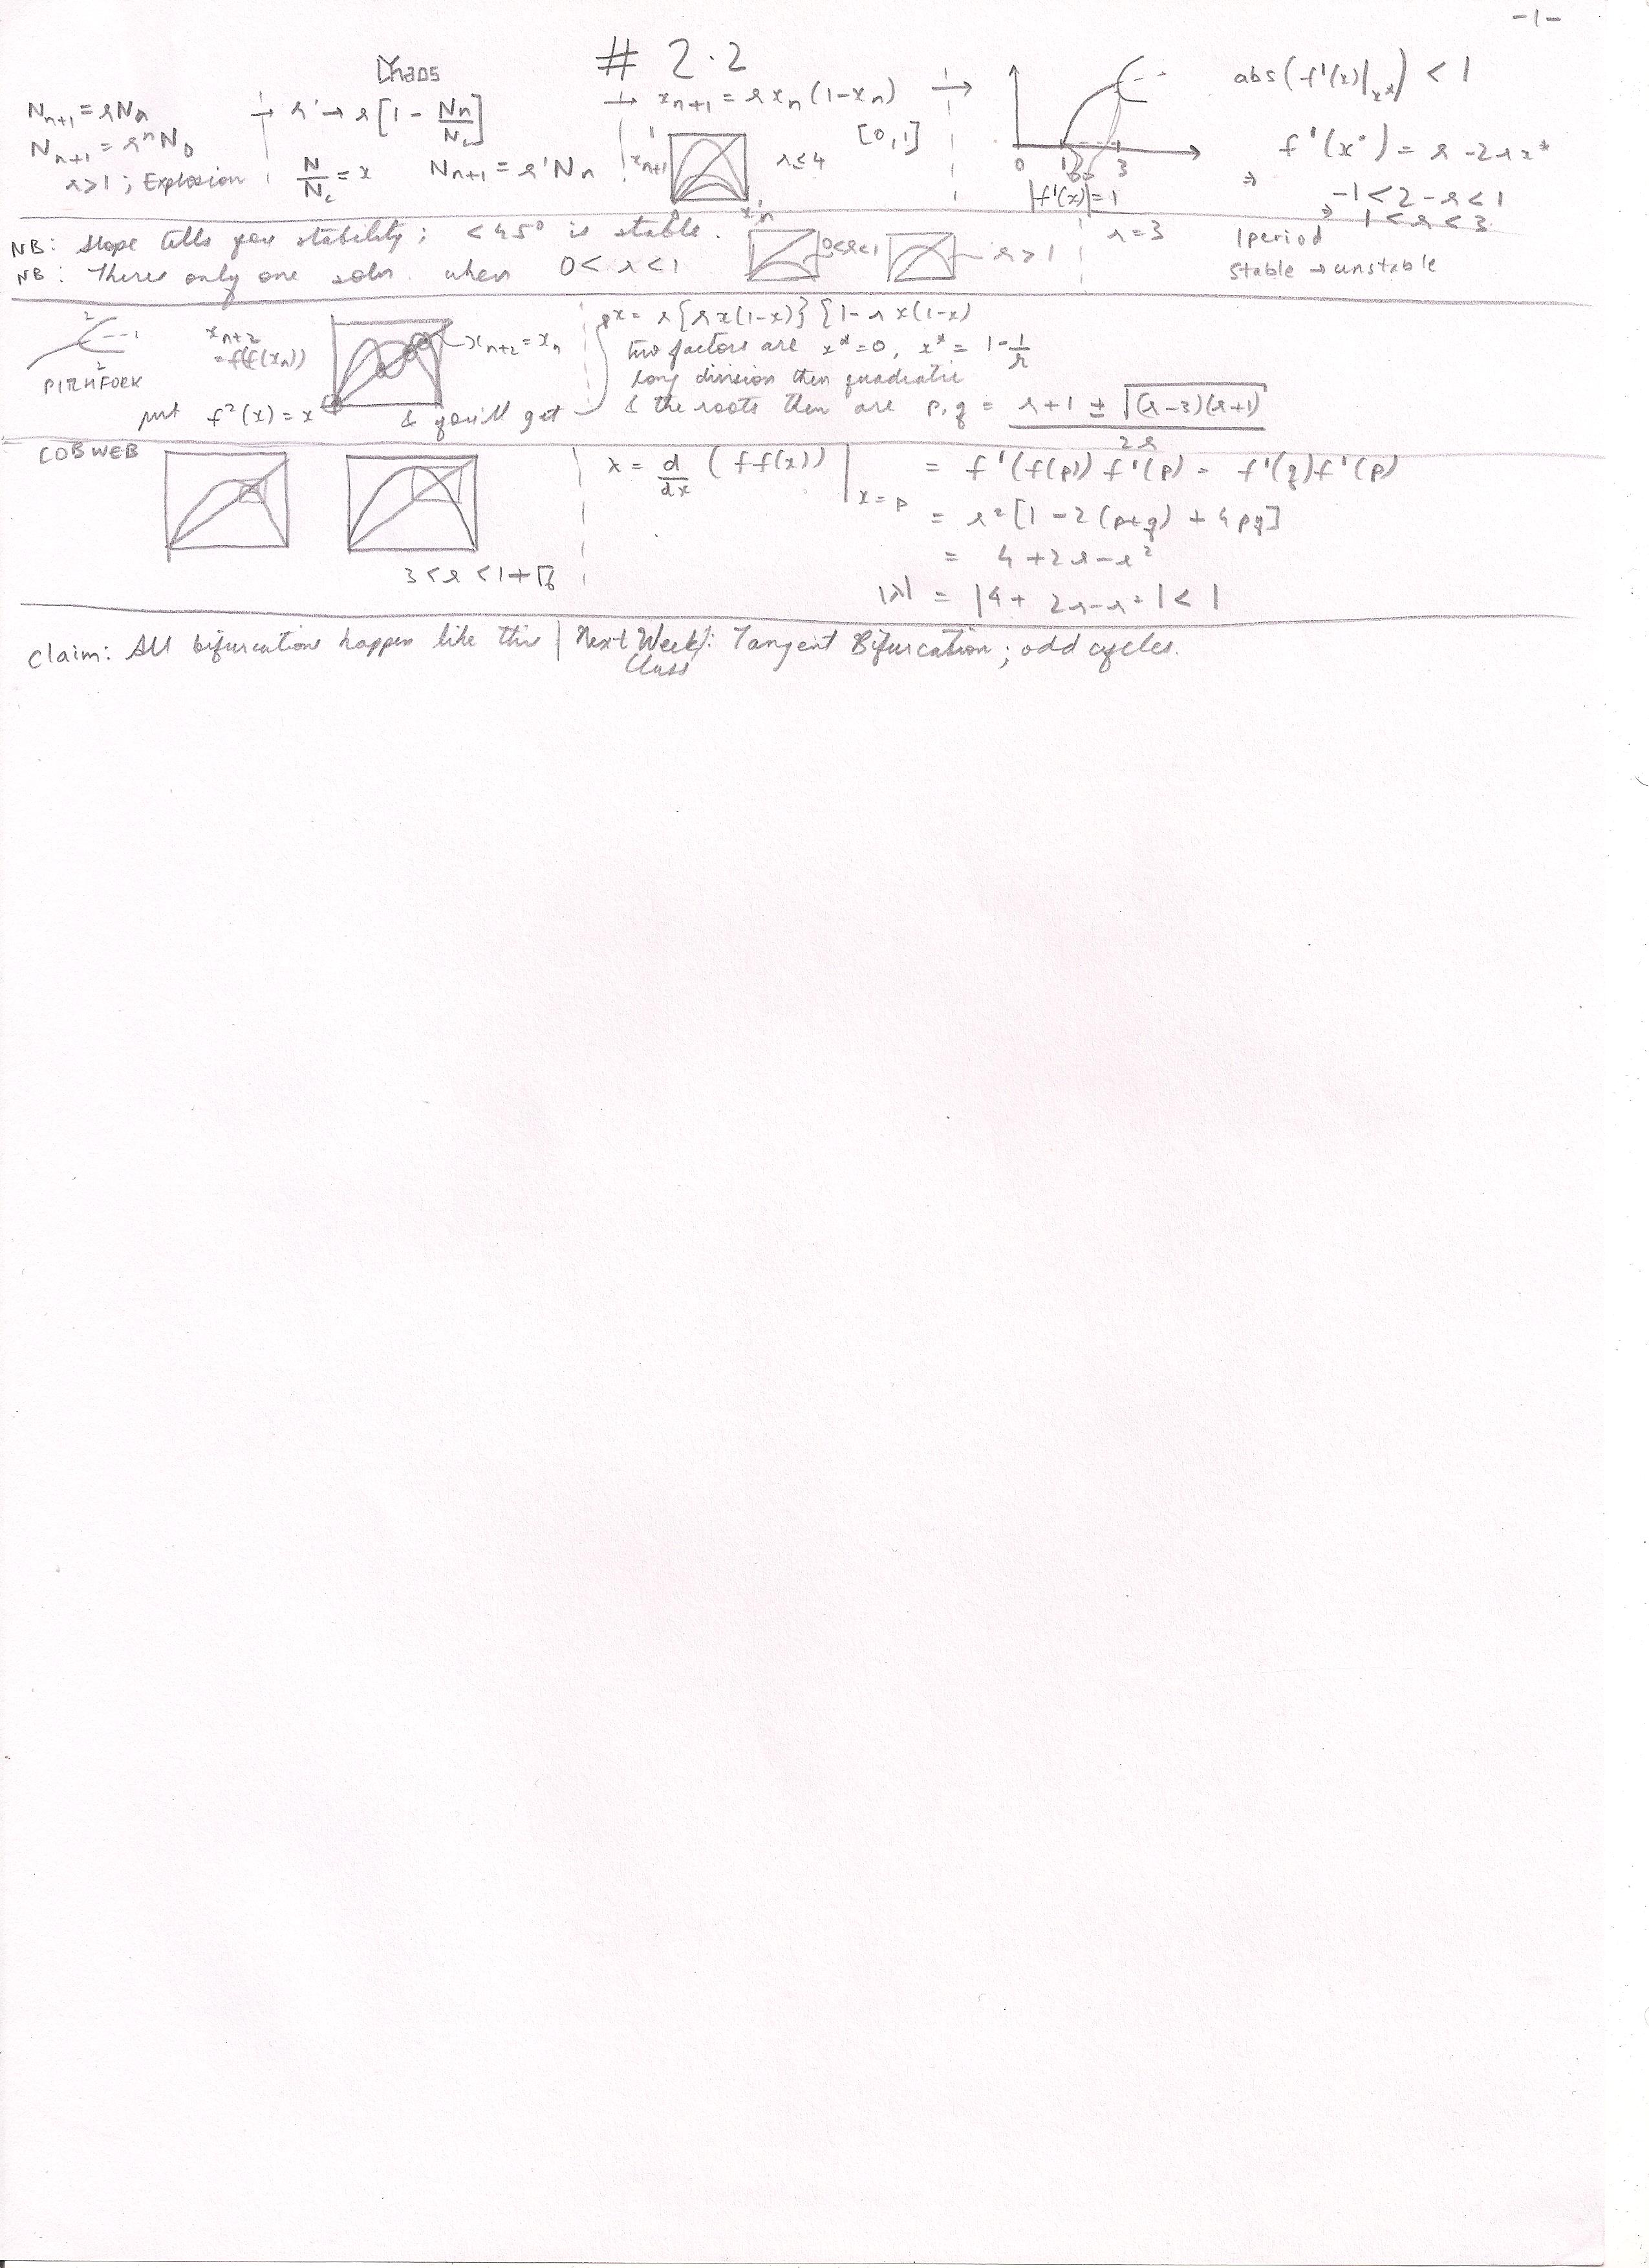 -1-
Chaos
# 2.2
N_{n+1} = rN_n
N_{n+1} = r^n N_0
r>1 ; Explosion
→ r' → r[1 - N_n/N_c]
N/N_c = x N_{n+1} = r'N_n
→ x_{n+1} = r x_n (1-x_n)
[0,1]
1
x_{n+1}
r≤4
x_n
1
→
0 1 3
|f'(x)|=1
abs(f'(x)|_{x*}) < 1
f'(x*) = r - 2rx*
⇒ -1 < 2-r < 1
⇒ 1 < r < 3
NB: Slope tells you stability; <45° is stable.
NB: Theres only one soln. when 0< r <1
0<r<1
r>1
r=3
1period
stable → unstable
2
--1
2
PITHFORK
x_{n+2}
=f(f(x_n))
x_{n+2} = x_n
put f²(x) = x & you'll get
x = r{rx(1-x)}{1-rx(1-x)
two factors are x*=0, x* = 1-1/r
long division then quadratic
& the roots then are p,q = r+1 ± √(r-3)(r+1) / 2r
COBWEB
3<r<1+√6
λ = d/dx (ff(x)) |_{x=p} = f'(f(p)) f'(p) = f'(q)f'(p)
= r²[1-2(p+q) + 4pq]
= 4+2r-r²
|λ| = |4+ 2r-r²|<1
Claim: All bifurcations happen like this | Next Week/: Tangent Bifurcation; odd cycles.
Class